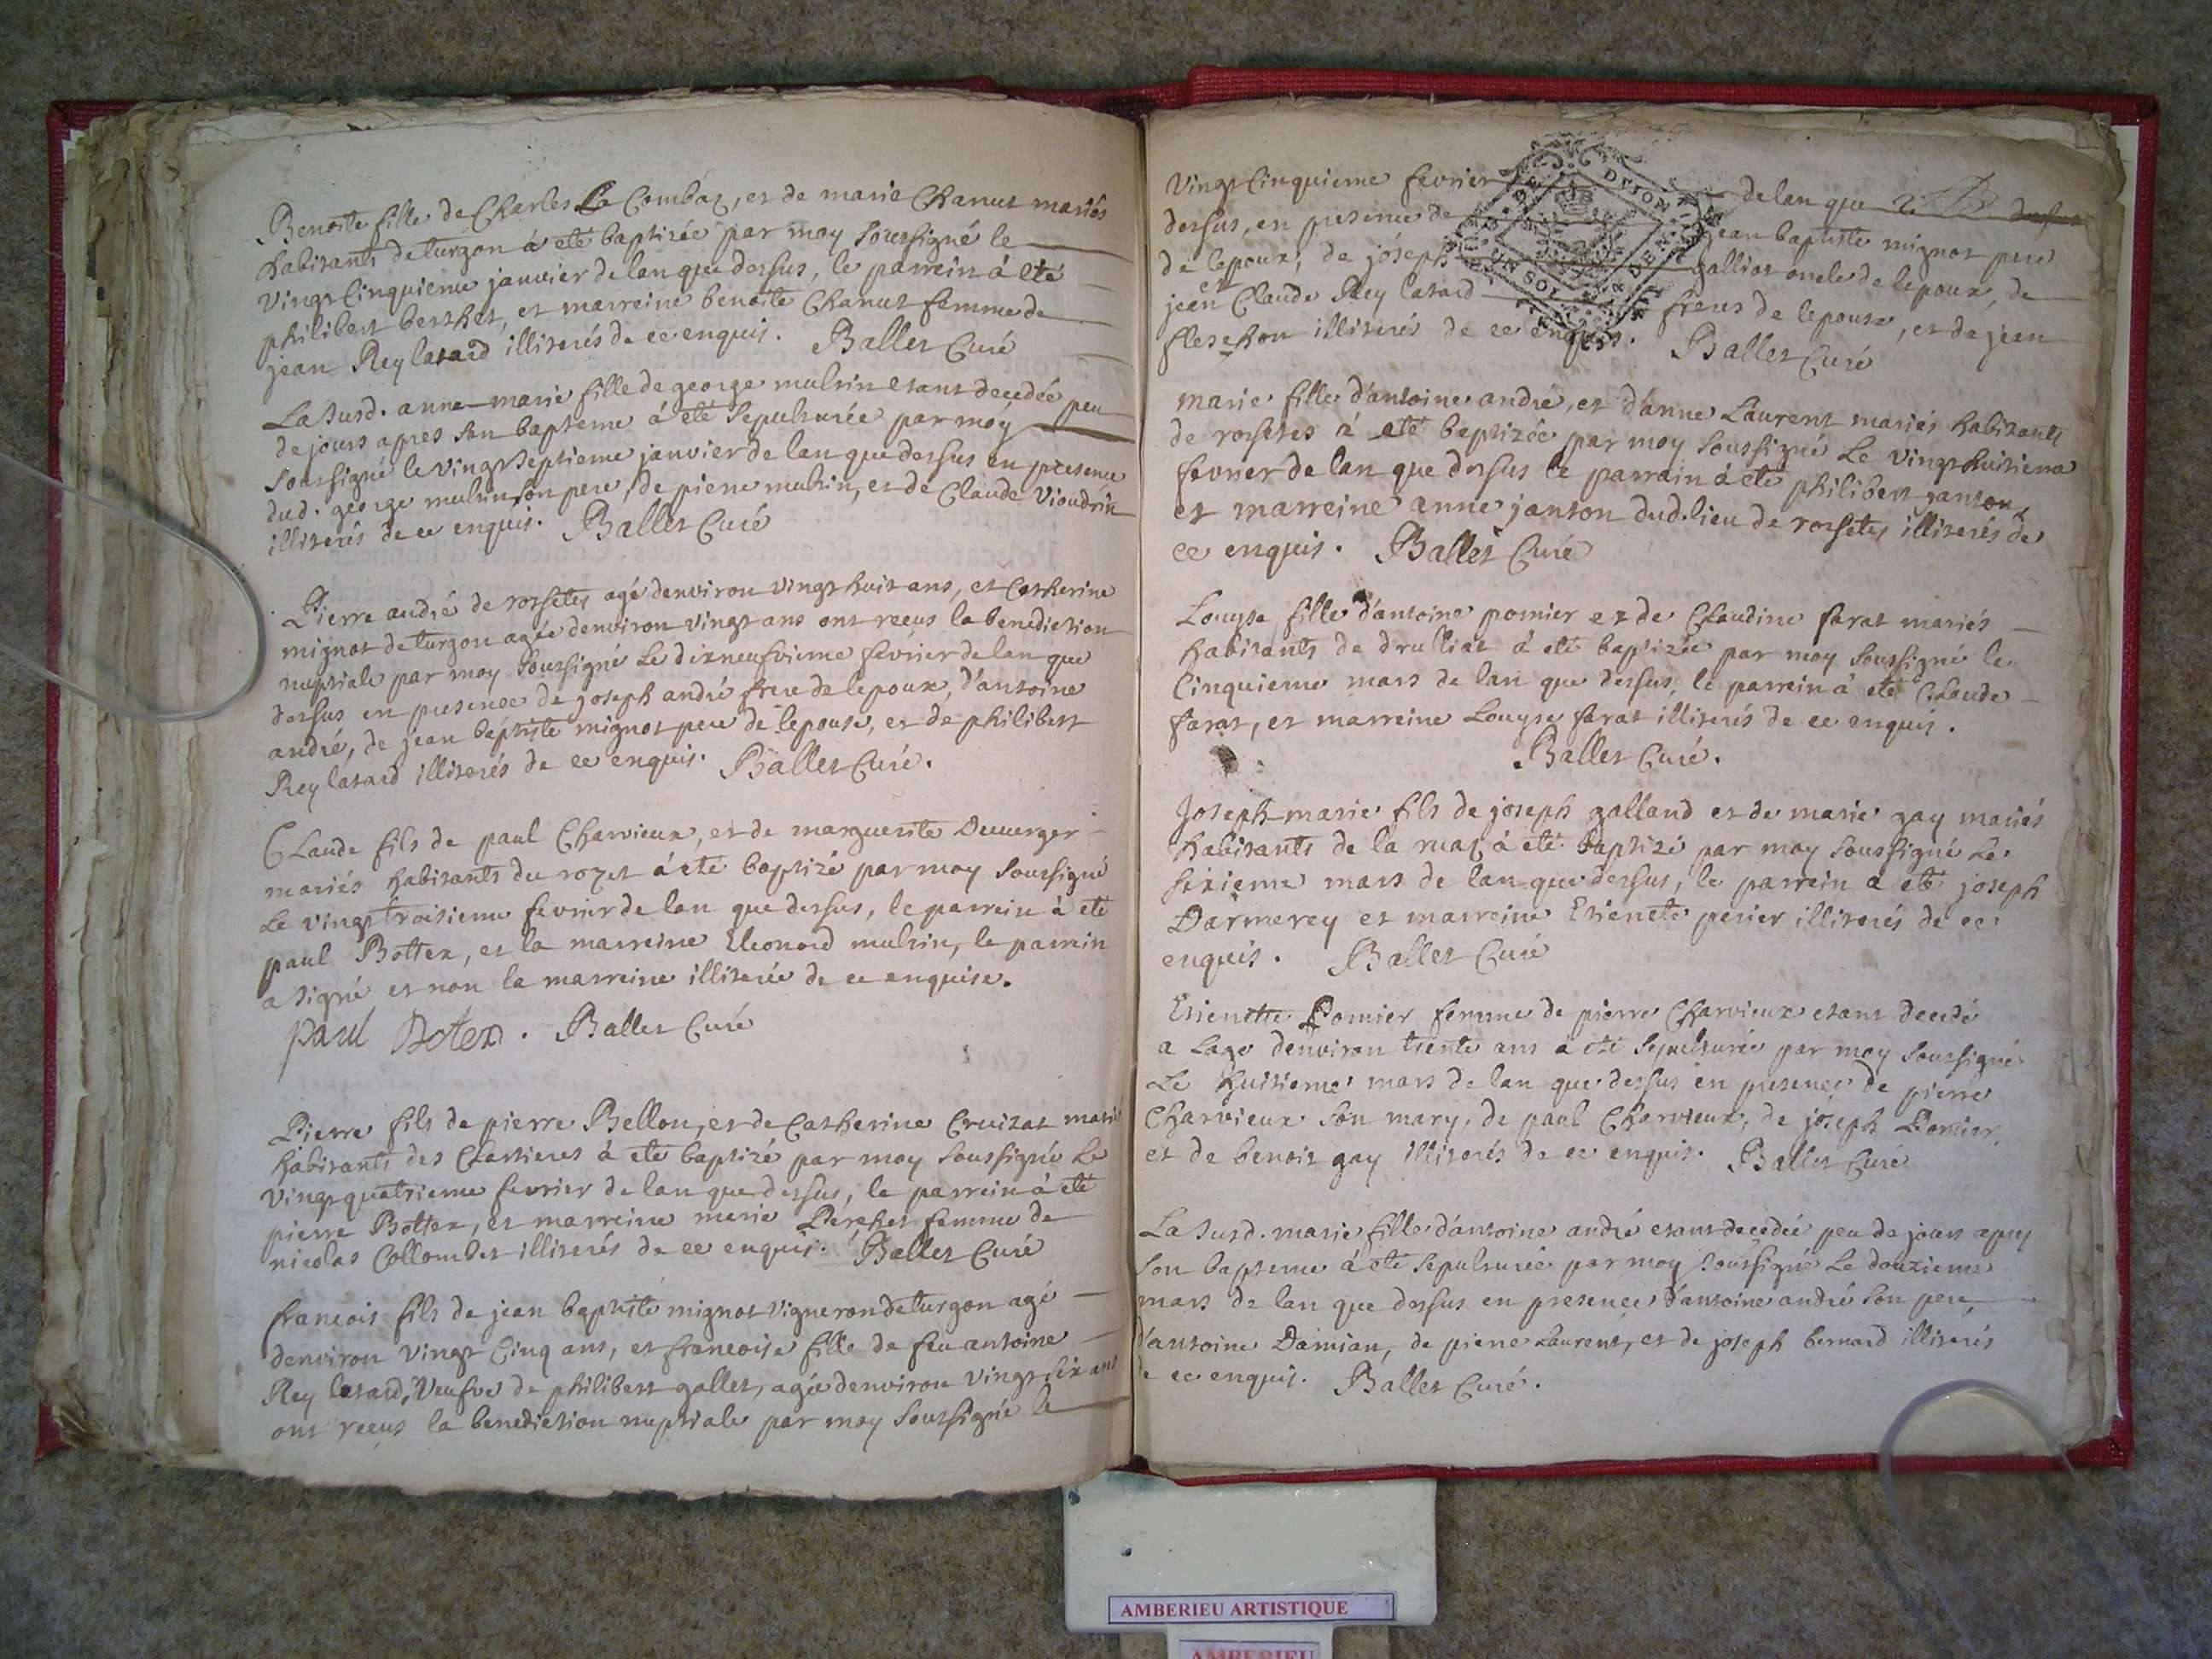 Benoite fille de Charles La Combaz, et de marie Chanut mariés
habitants de turgon à eté baptizée par moy soussigné le
vingt Cinquieme janvier de lan que dessus, le parrein à eté
philibert berthet, et marreine benoite Chanut femme de
jean Reylatard illiterés de ce enquis. Ballet Curé
La susd. anne-marie fille de george multin etant decedée peu
de jours apres son bapteme à eté sepulturée par moy
soussigné le vingt septieme janvier de lan que dessus en presence
dud. george multin son pere, de pierre multin, et de Claude Vioudrin
illiterés de ce enquis. Ballet Curé
Pierre andré de rossetes agé denviron vingt huit ans, et Catherine
mignot de turgon agée denviron vingt ans ont reçus la benediction
nuptiale par moy soussigné Le dixneufvieme fevrier de lan que
dessus en presence de joseph andré frere de lepoux, d'antoine
andré, de jean baptiste mignot pere de lepouse, et de philibert
Reylatard illiterés de ce enquis. Ballet Curé.
Claude fils de paul Charvieux, et de marguerite Demerger
mariés habitants du rozet à eté baptizé par moy soussigné
Le vingt troisieme fevrier de lan que dessus, le parrein à eté
paul Bottex, et la marreine Eleonord multin, le parrein
a signé et non la marreine illiterée de ce enquise.
paul Botex. Ballet Curé
Pierre fils de pierre Bellon, et de Catherine Cruizat mariés
habitants des Chartieres à eté baptizé par moy soussigné Le
vingt quatrieme fevrier de lan que dessus, le parrein à eté
pierre Bottex, et marreine marie Perchet femme de
nicolas Collombet illiterés de ce enquis. Ballet Curé
francois fils de jean baptiste mignot vigneron de turgon agé
denviron vingt Cinq ans, et francoise fille de feu antoine
Rey latard, veufve de philibert gallet, agée denviron vingt six ans
ont reçus la benediction nuptiale par moy soussigné le
vingt Cinquieme fevrier de lan que dessus
dessus, en presence de jean baptiste mignot pere
de lepoux, de joseph galliot oncle de lepoux, de
jean Claude Rey latard freres de lepouse, et de jean
flechon illiterés de ce enquis. Ballet Curé
marie fille d'antoine andré, et d'anne Laurent mariés habitants
de rossetes à eté baptizée par moy soussigné Le vingt huitieme
fevrier de lan que dessus le parrain à eté philibert janton
et marreine anne janton dud. lieu de rossetes illiterés de
ce enquis. Ballet Curé
Louyse fille d'antoine pomier et de Claudine farat mariés
habitants de drulliat à eté baptizée par moy soussigné le
Cinquieme mars de lan que dessus, le parrein à eté Claude
farat, et marreine Louyse farat illiterés de ce enquis.
Ballet Curé.
Joseph-marie fils de joseph galland et de marie gay mariés
habitants de la ruaz à eté baptizé par moy soussigné Le
sixieme mars de lan que dessus, le parrein à eté joseph
Darmerey et marreine Etienete perier illiterés de ce
enquis. Ballet Curé
Etienette Pomier femme de pierre Charvieux etant decedé
a Lage denviron trente ans à eté sepulturée par moy soussigné
Le huitieme mars de lan que dessus en presence de pierre
Charvieux son mary, de paul Charvieux, de joseph Pomier
et de benoit gay illiterés de ce enquis. Ballet Curé
La susd. marie fille d'antoine andré etant decedée peu de jours apres
son bapteme à eté sepulturée par moy soussigné Le douzieme
mars de lan que dessus en presence d'antoine andré son pere,
d'antoine Damian, de pierre Laurent, et de joseph bernard illiterés
de ce enquis. Ballet Curé.
AMBERIEU ARTISTIQUE
AMBERIEU